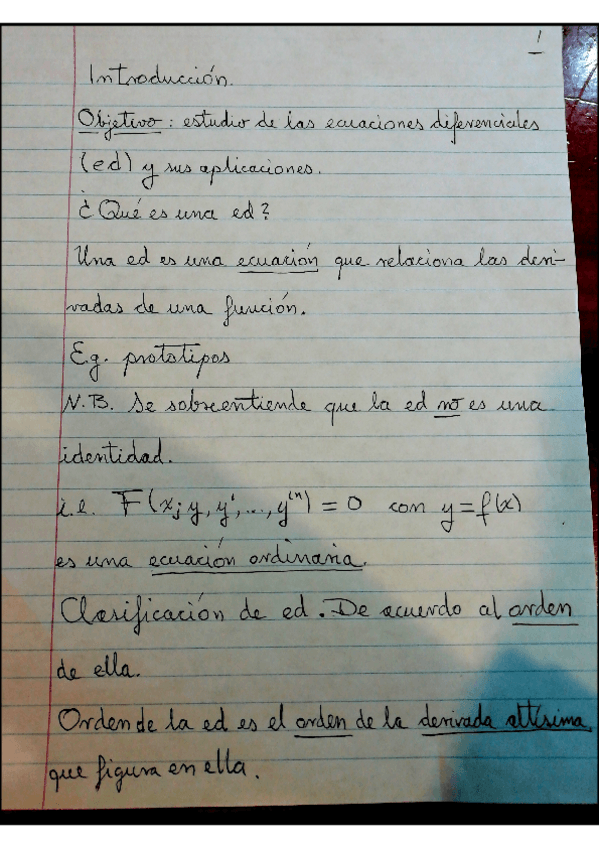 1
Introducción.
Objetivo: estudio de las ecuaciones diferenciales
(ed) y sus aplicaciones.
¿Qué es una ed?
Una ed es una ecuación que relaciona las deri-
vadas de una función.
E.g. prototipos
N.B. Se sobreentiende que la ed no es una
identidad.
i.e. F(x, y, y', ..., y⁽ⁿ⁾) = 0 con y = f(x)
es una ecuación ordinaria.
Clasificación de ed. De acuerdo al orden
de ella.
Orden de la ed es el orden de la derivada altísima
que figura en ella.